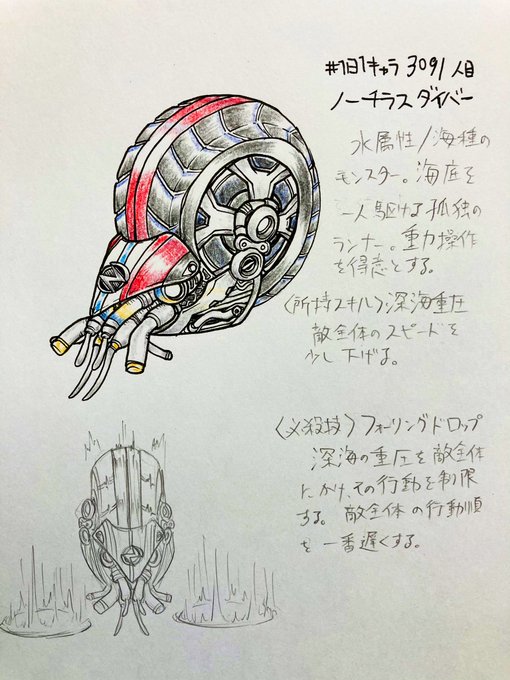 #1日1キャラ 3091人目
ノーチラスダイバー
水属性/海種の
モンスター。海底を
一人駆ける孤独の
ランナー。重力操作
を得意とする。
〈所持スキル〉深海重圧
敵全体のスピードを
少し下げる。
〈必殺技〉フォーリングドロップ
深海の重圧を敵全体
にかけ、その行動を制限
する。敵全体の行動順
を一番遅くする。